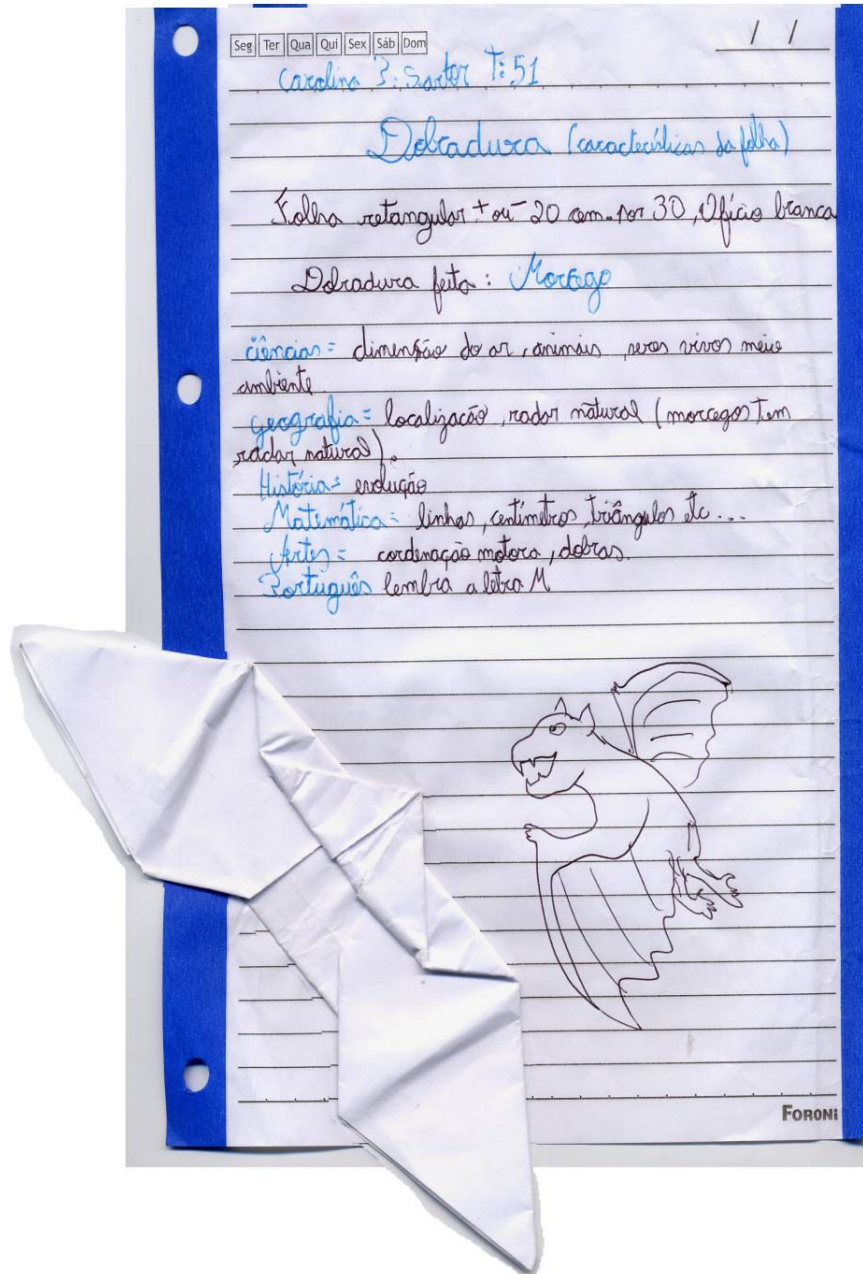 Seg Ter Qua Qui Sex Sáb Dom / /
Carolina B. Sartor T: 51
Dobradura (características da folha)
Folha retangular + ou - 20 cem. por 30, Ofício branca
Dobradura feita: Morcego
ciências = dimensão do ar, animais, seres vivos meio
ambiente
geografia = localização, radar natural (morcegos tem
radar natural).
História = evolução
Matemática = linhas, centímetros, triângulos etc...
Artes = cordenação motora, dobras.
Português lembra a letra M
FORONI